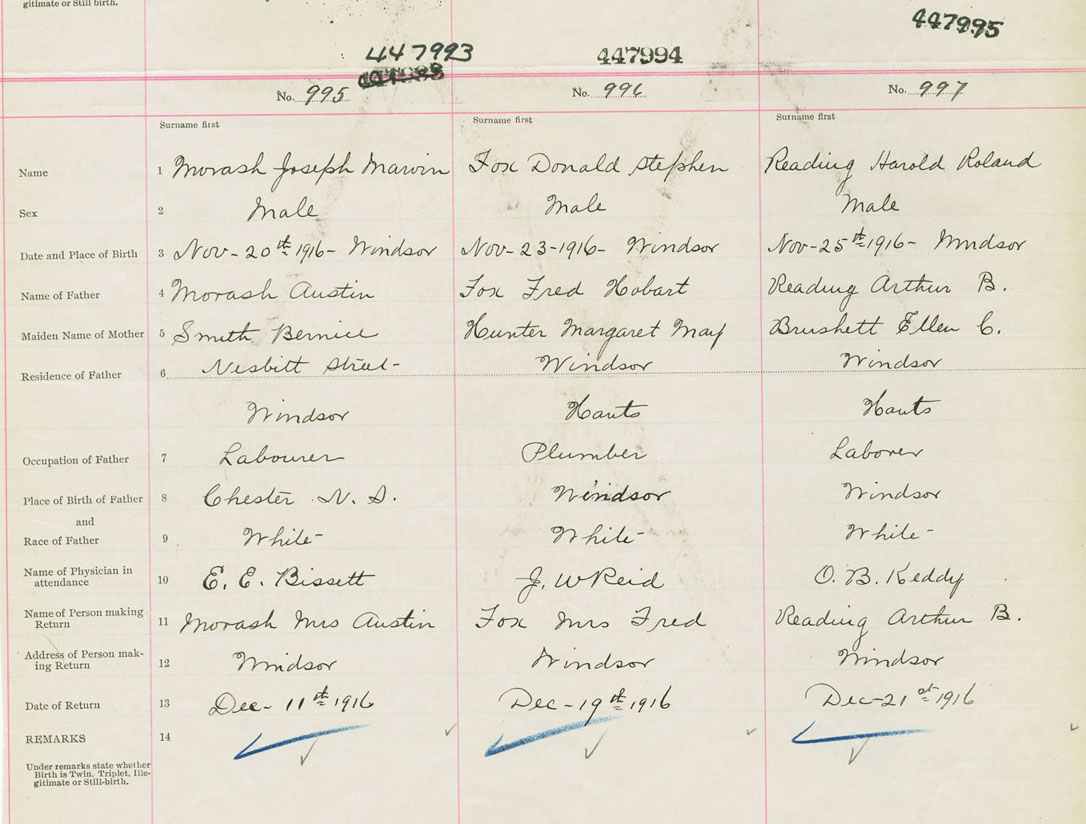 gitimate or Still birth.
447993 447994 447995
No. 995 No. 996 No. 997
Surname first Surname first Surname first
Name 1 Morash Joseph Marvin Fox Donald Stephen Reading Harold Roland
Sex 2 Male Male Male
Date and Place of Birth 3 Nov-20th 1916- Windsor Nov-23-1916- Windsor Nov-25th 1916- Windsor
Name of Father 4 Morash Austin Fox Fred Hobart Reading Arthur B.
Maiden Name of Mother 5 Smith Bernice Hunter Margaret May Brushett Ellen C.
Residence of Father 6 Nesbitt Street- Windsor Windsor
Windsor Hants Hants
Occupation of Father 7 Labourer Plumber Laborer
Place of Birth of Father 8 Chester N.S. Windsor Windsor
and
Race of Father 9 White- White- White-
Name of Physician in
attendance 10 E. E. Bissett J. W Reid O. B. Keddy
Name of Person making
Return 11 Morash Mrs Austin Fox Mrs Fred Reading Arthur B.
Address of Person mak-
ing Return 12 Windsor Windsor Windsor
Date of Return 13 Dec- 11th 1916 Dec-19th 1916 Dec-21st 1916
REMARKS 14
Under remarks state whether
Birth is Twin, Triplet, Ille-
gitimate or Still-birth.